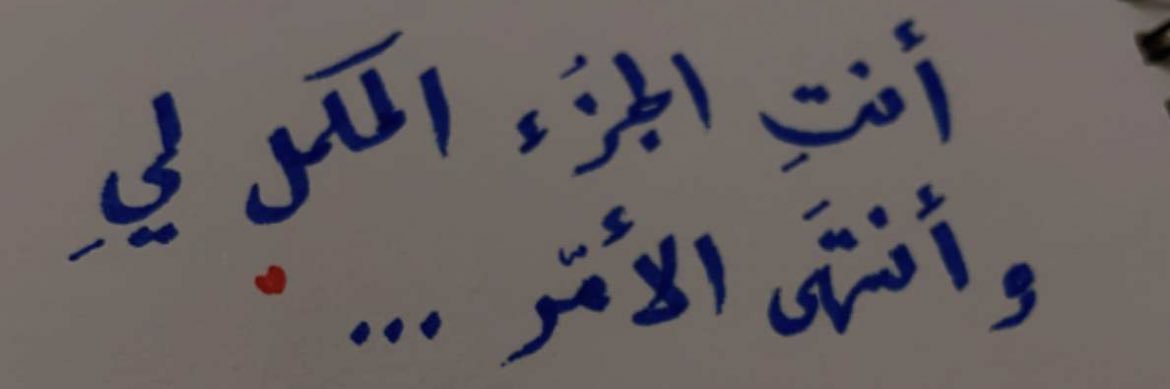 أنتِ الجزُء المكمل ليِ
وأنتهَى الأمّر ...